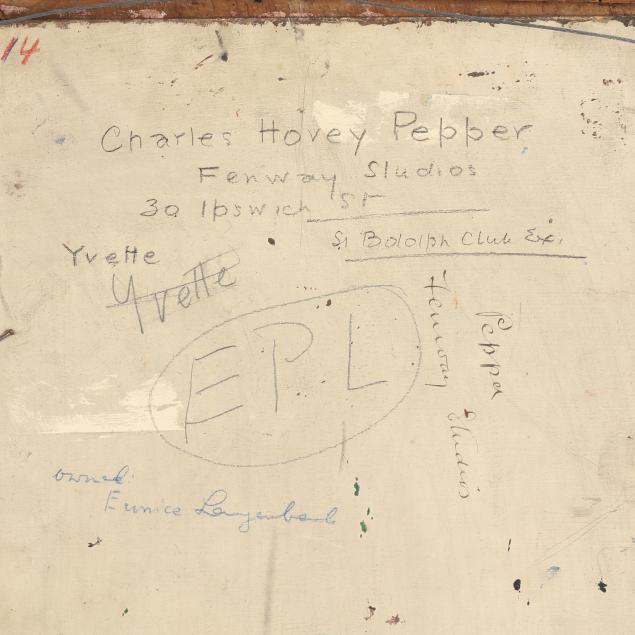 14
Charles Hovey Pepper
Fenway Studios
30 Ipswich St
St Botolph Club Ex.
Yvette
Yvette
EPL
Pepper
Fenway Studios
owned:
Eunice